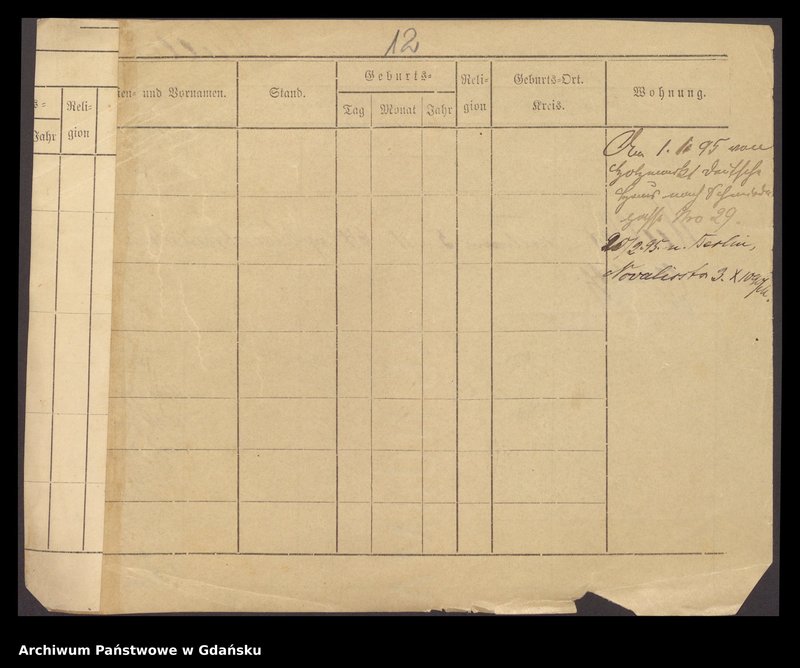 12
s-
Jahr
Reli-
gion
en- und Vornamen.
Stand.
Geburts-
Tag
Monat
Jahr
Reli-
gion
Geburts-Ort.
Kreis.
Wohnung.
1. 95 von
Holzmarkt Deutsche
Haus nach Schmiede
gasse No 29.
20/2.95. n. Berlin,
Novalisstr 3.
Archiwum Państwowe w Gdańsku